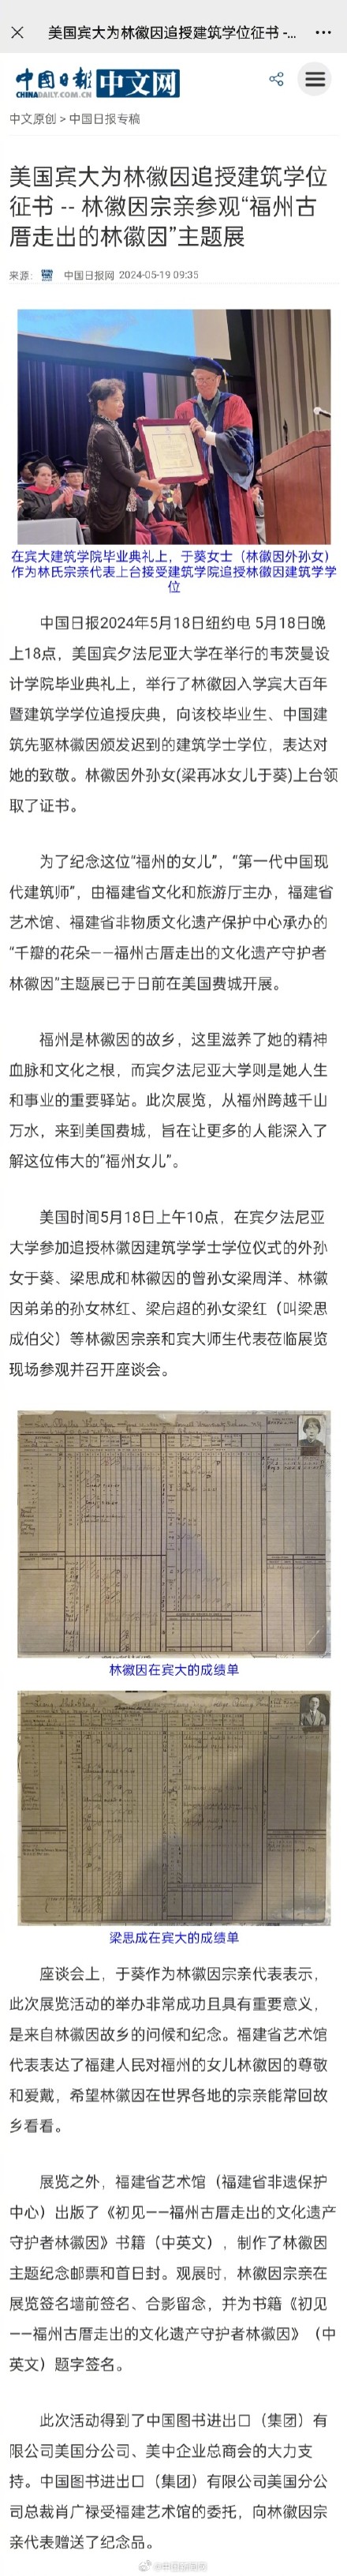 美国宾大为林徽因追授建筑学位征书 -...
中国日报 中文网
CHINADAILY.COM.CN
中文原创 > 中国日报专稿
美国宾大为林徽因追授建筑学位
征书 -- 林徽因宗亲参观“福州古
厝走出的林徽因”主题展
来源： 中国日报网 2024-05-19 09:35
在宾大建筑学院毕业典礼上，于葵女士（林徽因外孙女）
作为林氏宗亲代表上台接受建筑学院追授林徽因建筑学学
位
中国日报2024年5月18日纽约电 5月18日晚
上18点，美国宾夕法尼亚大学在举行的韦茨曼设
计学院毕业典礼上，举行了林徽因入学宾大百年
暨建筑学学位追授庆典，向该校毕业生、中国建
筑先驱林徽因颁发迟到的建筑学士学位，表达对
她的致敬。林徽因外孙女(梁再冰女儿于葵)上台领
取了证书。
为了纪念这位“福州的女儿”，“第一代中国现
代建筑师”，由福建省文化和旅游厅主办，福建省
艺术馆、福建省非物质文化遗产保护中心承办的
“千瓣的花朵——福州古厝走出的文化遗产守护者
林徽因”主题展已于日前在美国费城开展。
福州是林徽因的故乡，这里滋养了她的精神
血脉和文化之根，而宾夕法尼亚大学则是她人生
和事业的重要驿站。此次展览，从福州跨越千山
万水，来到美国费城，旨在让更多的人能深入了
解这位伟大的“福州女儿”。
美国时间5月18日上午10点，在宾夕法尼亚
大学参加追授林徽因建筑学学士学位仪式的外孙
女于葵、梁思成和林徽因的曾孙女梁周洋、林徽
因弟弟的孙女林红、梁启超的孙女梁红（叫梁思
成伯父）等林徽因宗亲和宾大师生代表莅临展览
现场参观并召开座谈会。
林徽因在宾大的成绩单
梁思成在宾大的成绩单
座谈会上，于葵作为林徽因宗亲代表表示，
此次展览活动的举办非常成功且具有重要意义，
是来自林徽因故乡的问候和纪念。福建省艺术馆
代表表达了福建人民对福州的女儿林徽因的尊敬
和爱戴，希望林徽因在世界各地的宗亲能常回故
乡看看。
展览之外，福建省艺术馆（福建省非遗保护
中心）出版了《初见——福州古厝走出的文化遗产
守护者林徽因》书籍（中英文），制作了林徽因
主题纪念邮票和首日封。观展时，林徽因宗亲在
展览签名墙前签名、合影留念，并为书籍《初见
——福州古厝走出的文化遗产守护者林徽因》（中
英文）题字签名。
此次活动得到了中国图书进出口（集团）有
限公司美国分公司、美中企业总商会的大力支
持。中国图书进出口（集团）有限公司美国分公
司总裁肖广禄受福建艺术馆的委托，向林徽因宗
亲代表赠送了纪念品。